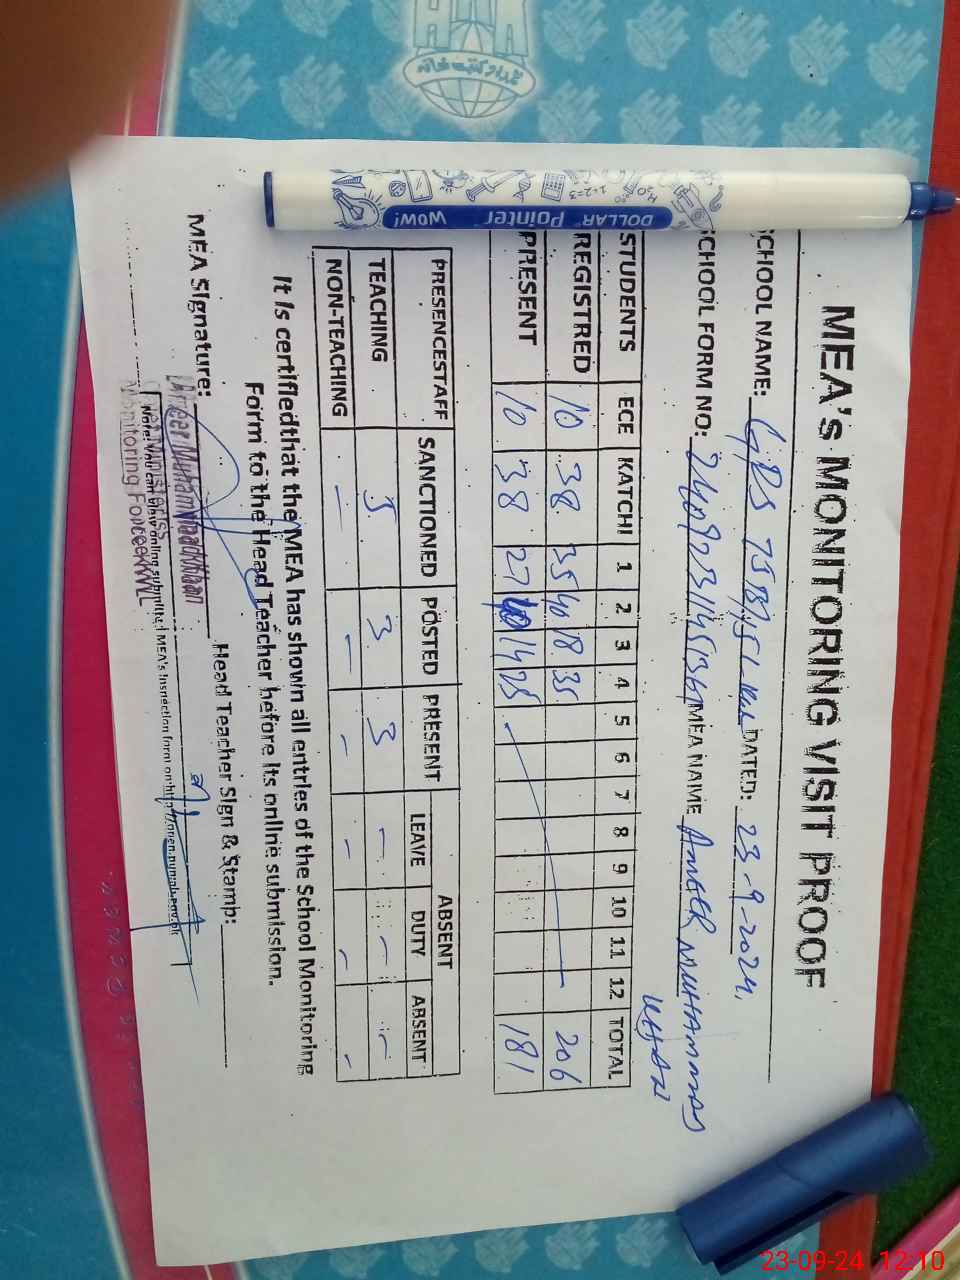 MEA's MONITORING VISIT PROOF
CHOOL NAME: GPS 75B/15L DATED: 23-9-2024.
CHOOL FORM NO: MEA NAME AMEER MUHAMMAD
KHAN
STUDENTS ECE KATCHI 1 2 3 4 5 6 7 8 9 10 11 12 TOTAL
REGISTRED 10 38 35 40 18 35 206
PRESENT 10 38 27 14 25 181
PRESENCESTAFF SANCTIONED POSTED PRESENT ABSENT
LEAVE DUTY ABSENT
TEACHING 5 3 3 - - -
NON-TEACHING - - - - - -
It is certifiedthat the MEA has shown all entries of the School Monitoring
Form to the Head Teacher before its online submission.
MEA Signature: Head Teacher Sign & Stamp:
Ameer Muhammad Khan
Monitoring Force KWL
Note: You can view online submitted MEA's inspection form on:http://open.punjab.gov.pk
DOLLAR Pointer WOW!
1+2=3
H₂O
امداد کتب خانہ
23-09-24 12:10